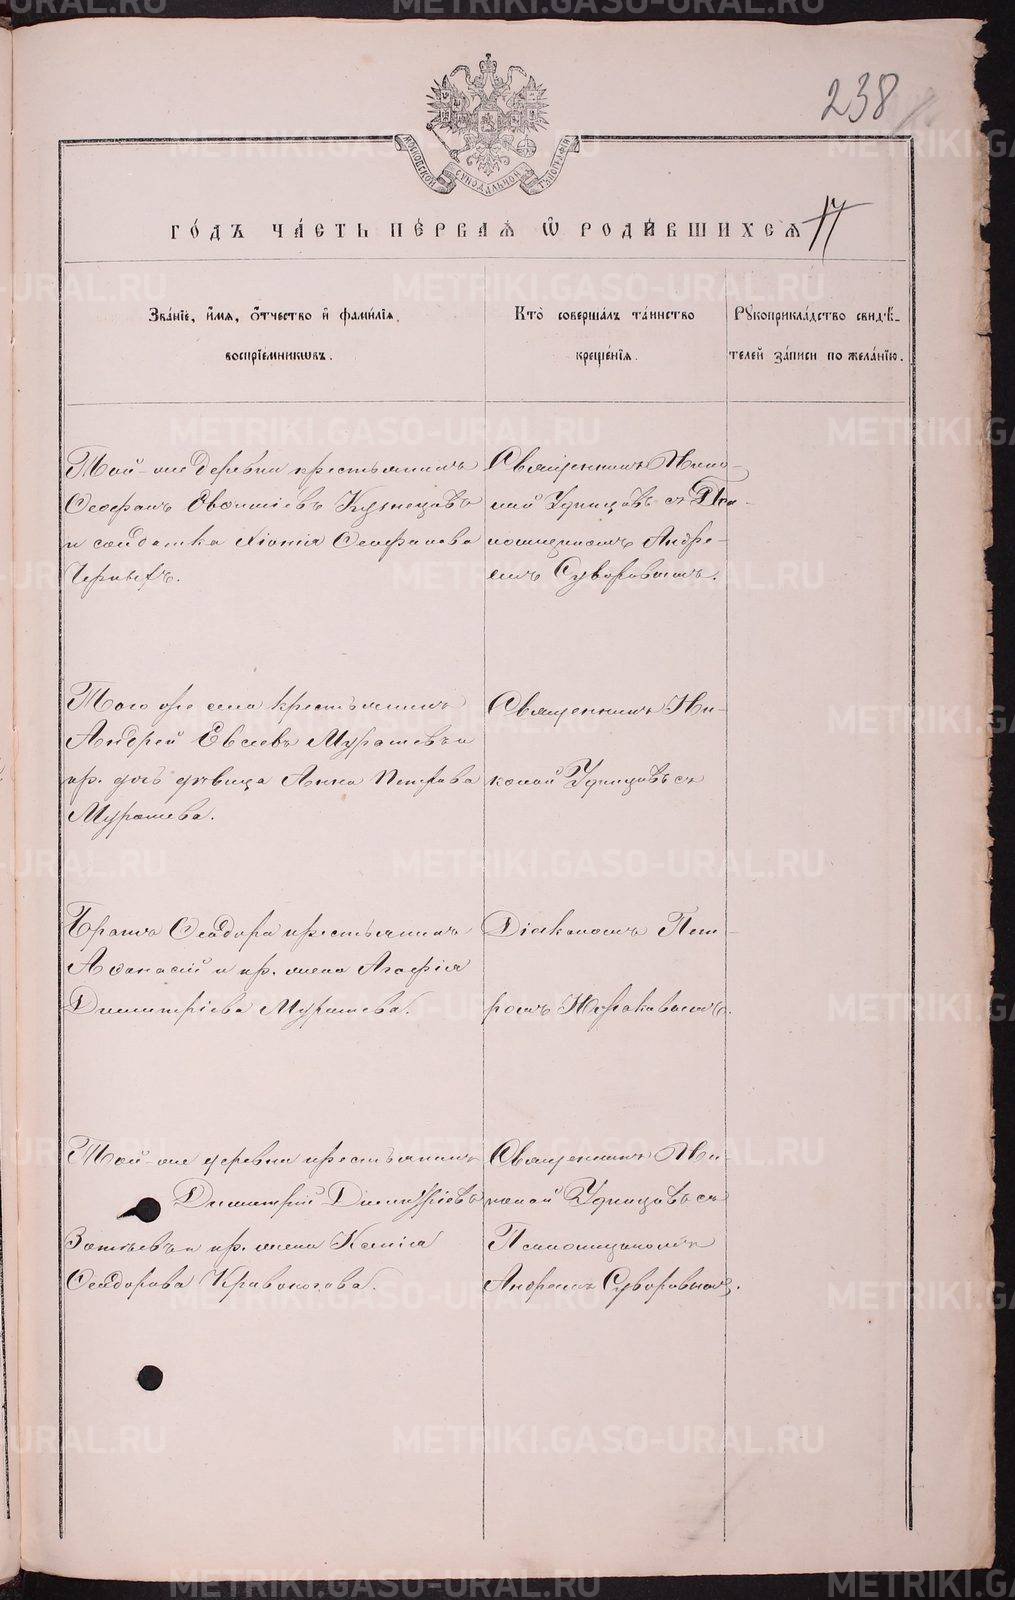 238
МОСКОВСКОЙ СѴНОДАЛЬНОЙ ТѴПОГРАФІИ
ГО́ДЪ ЧА́СТЬ ПЕ́РВАЯ Ѡ҆ РОДИ́ВШИХСЯ 17
Зва́нїе, и҆́мя, ѻ҆́тчество и҆ фами́лїя
воспрїе́мникѡвъ.
Кто̀ соверша́лъ та́инство
креще́нїя.
Рꙋкоприкла́дство свидѣ́-
телей за́писи по жела́нїю.
Той-же деревни крестьянинъ
Ѳеофанъ Кузнецовъ
и солдатка Хіонія Ѳеофанова
Черныхъ.
Священникъ Нико-
лай Удинцовъ съ Пса-
ломщикомъ Андре-
емъ Суворовымъ.
Того же села крестьянинъ
Андрей Евсеевъ Мурашевъ и
кр. дочь дѣвица Анна Петрова
Мурашева.
Священникъ Ни-
колай Удинцовъ съ
Братъ Ѳеодора крестьянинъ
Аѳанасій и кр. жена Агафія
Димитріева Мурашева.
Діакономъ Пет-
ромъ
Той-же деревни крестьянинъ
Димитрій Димитріевъ
Зотѣевъ и кр. жена Ксенія
Ѳеодорова Кривоногова.
Священникъ Ни-
колай Удинцовъ съ
Псаломщикомъ
Андреемъ Суворовымъ.
METRIKI.GASO-URAL.RU